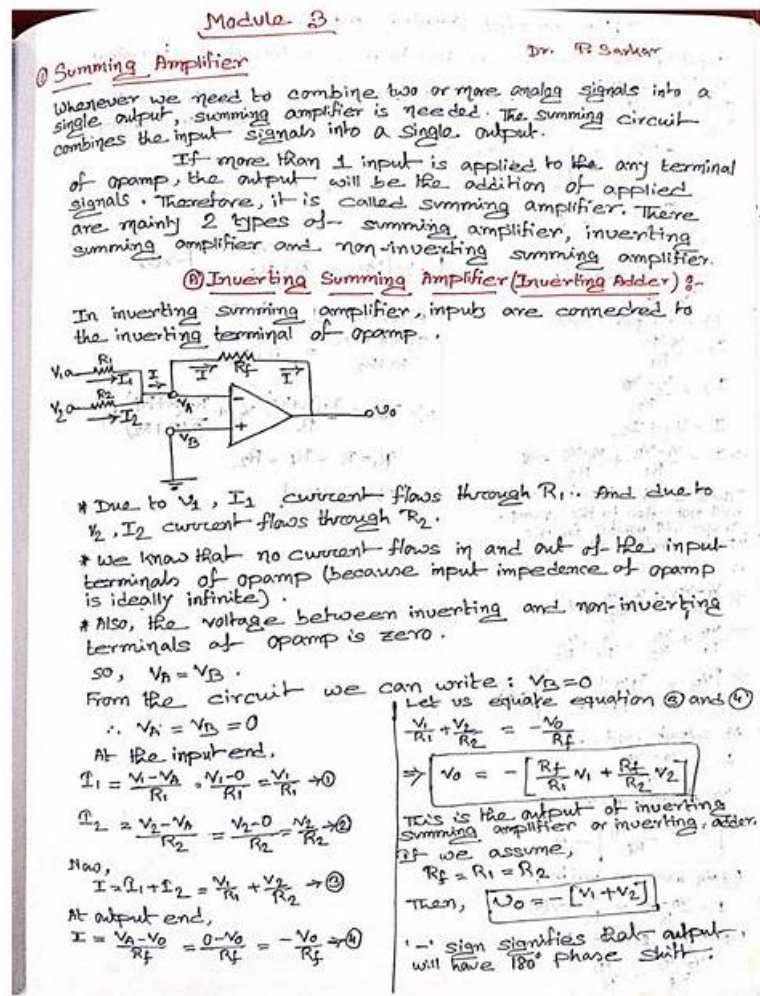 Module 3.
Dr. P. Sarkar
① Summing Amplifier
Whenever we need to combine two or more analog signals into a
single output, summing amplifier is needed. The summing circuit
combines the input signals into a single output.
If more than 1 input is applied to the any terminal
of opamp, the output will be the addition of applied
signals. Therefore, it is called summing amplifier. There
are mainly 2 types of summing amplifier, inverting
summing amplifier and non-inverting summing amplifier.
Ⓐ Inverting Summing Amplifier (Inverting Adder) :-
In inverting summing amplifier, inputs are connected to
the inverting terminal of opamp.
V1 R1 I1 I I Rf I
V2 R2 I2 VA - Vo
VB +
* Due to V1, I1 current flows through R1. And due to
V2, I2 current flows through R2.
* We know that no current flows in and out of the input
terminals of opamp (because input impedence of opamp
is ideally infinite).
* Also, the voltage between inverting and non-inverting
terminals of opamp is zero.
so, VA = VB.
From the circuit we can write : VB = 0
∴ VA = VB = 0
At the input end,
I1 = (V1-VA)/R1 = (V1-0)/R1 = V1/R1 → ①
I2 = (V2-VA)/R2 = (V2-0)/R2 = V2/R2 → ②
Now,
I = I1 + I2 = V1/R1 + V2/R2 → ③
At output end,
I = (VA-Vo)/Rf = (0-Vo)/Rf = -Vo/Rf → ④
Let us equate equation ③ and ④
V1/R1 + V2/R2 = -Vo/Rf
⇒ Vo = - [Rf/R1 V1 + Rf/R2 V2]
This is the output of inverting
summing amplifier or inverting adder.
If we assume,
Rf = R1 = R2
Then, Vo = - [V1 + V2]
'-' sign signifies that output
will have 180° phase shift.